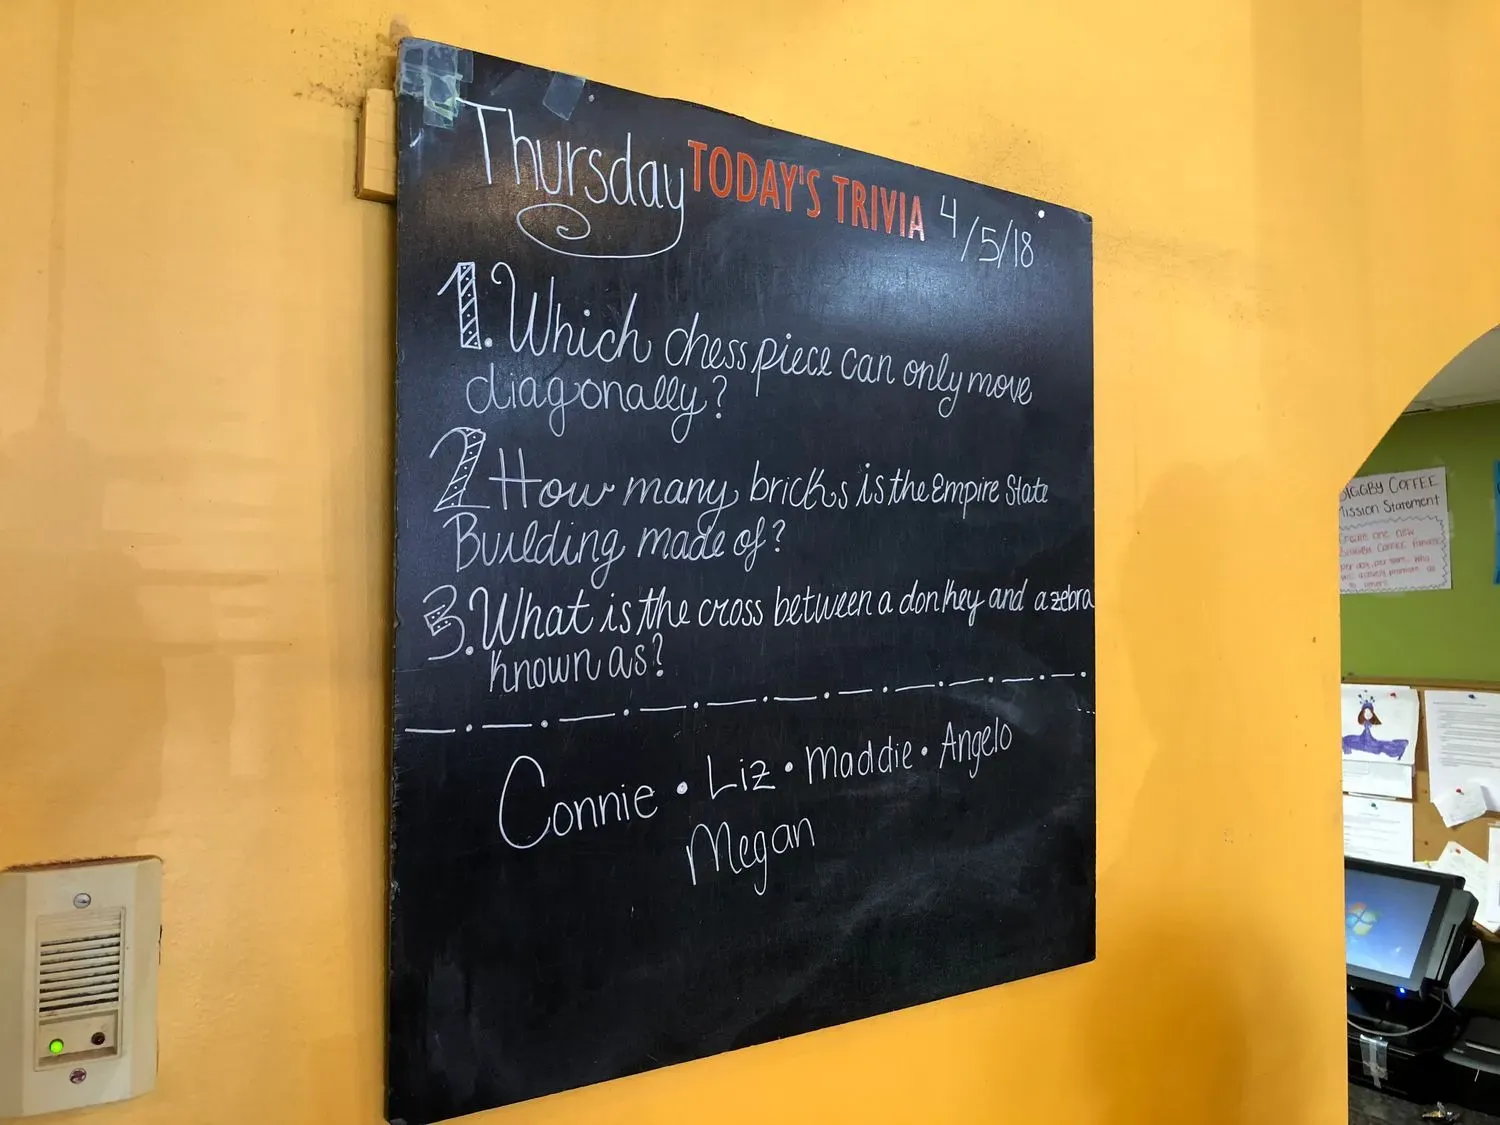 Thursday TODAY'S TRIVIA 4/5/18
1. Which chess piece can only move
diagonally?
2 How many bricks is the Empire State
Building made of?
3. What is the cross between a donkey and a zebra
known as?
Connie • Liz • Maddie • Angelo
Megan
BIGGBY COFFEE
Mission Statement
Create one new
BIGGBY COFFEE fanatic
per day, per store, who
will actively promote us
to others